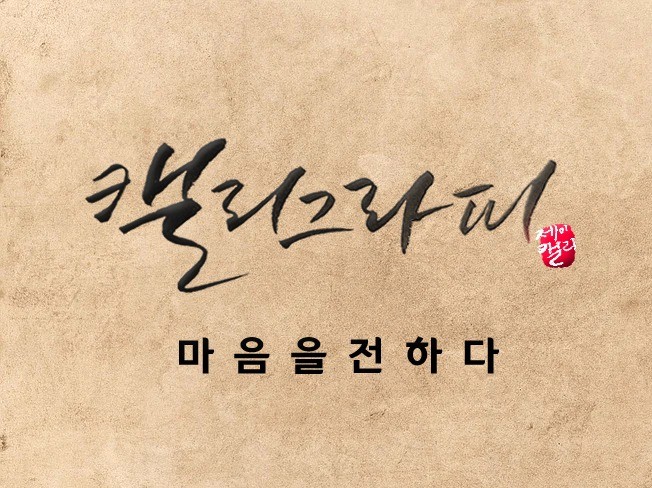 캘리그라피
제이
캘라
마음을전하다